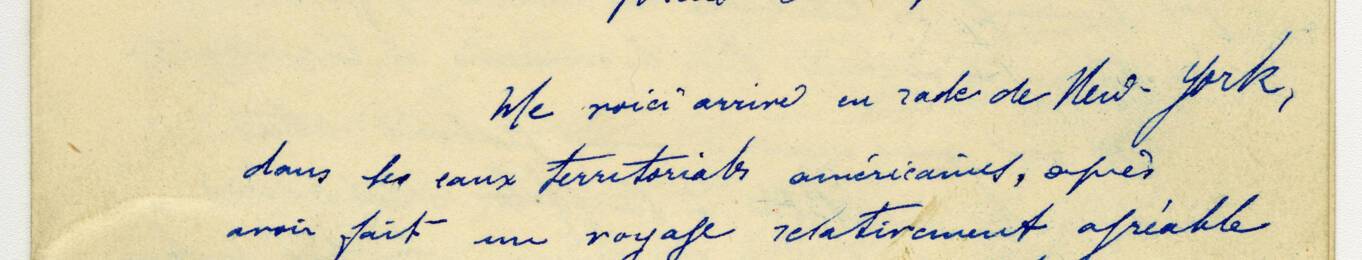 Me voici arrivé en rade de New-York,
dans les eaux territoriales américaines, après
avoir fait un voyage relativement agréable